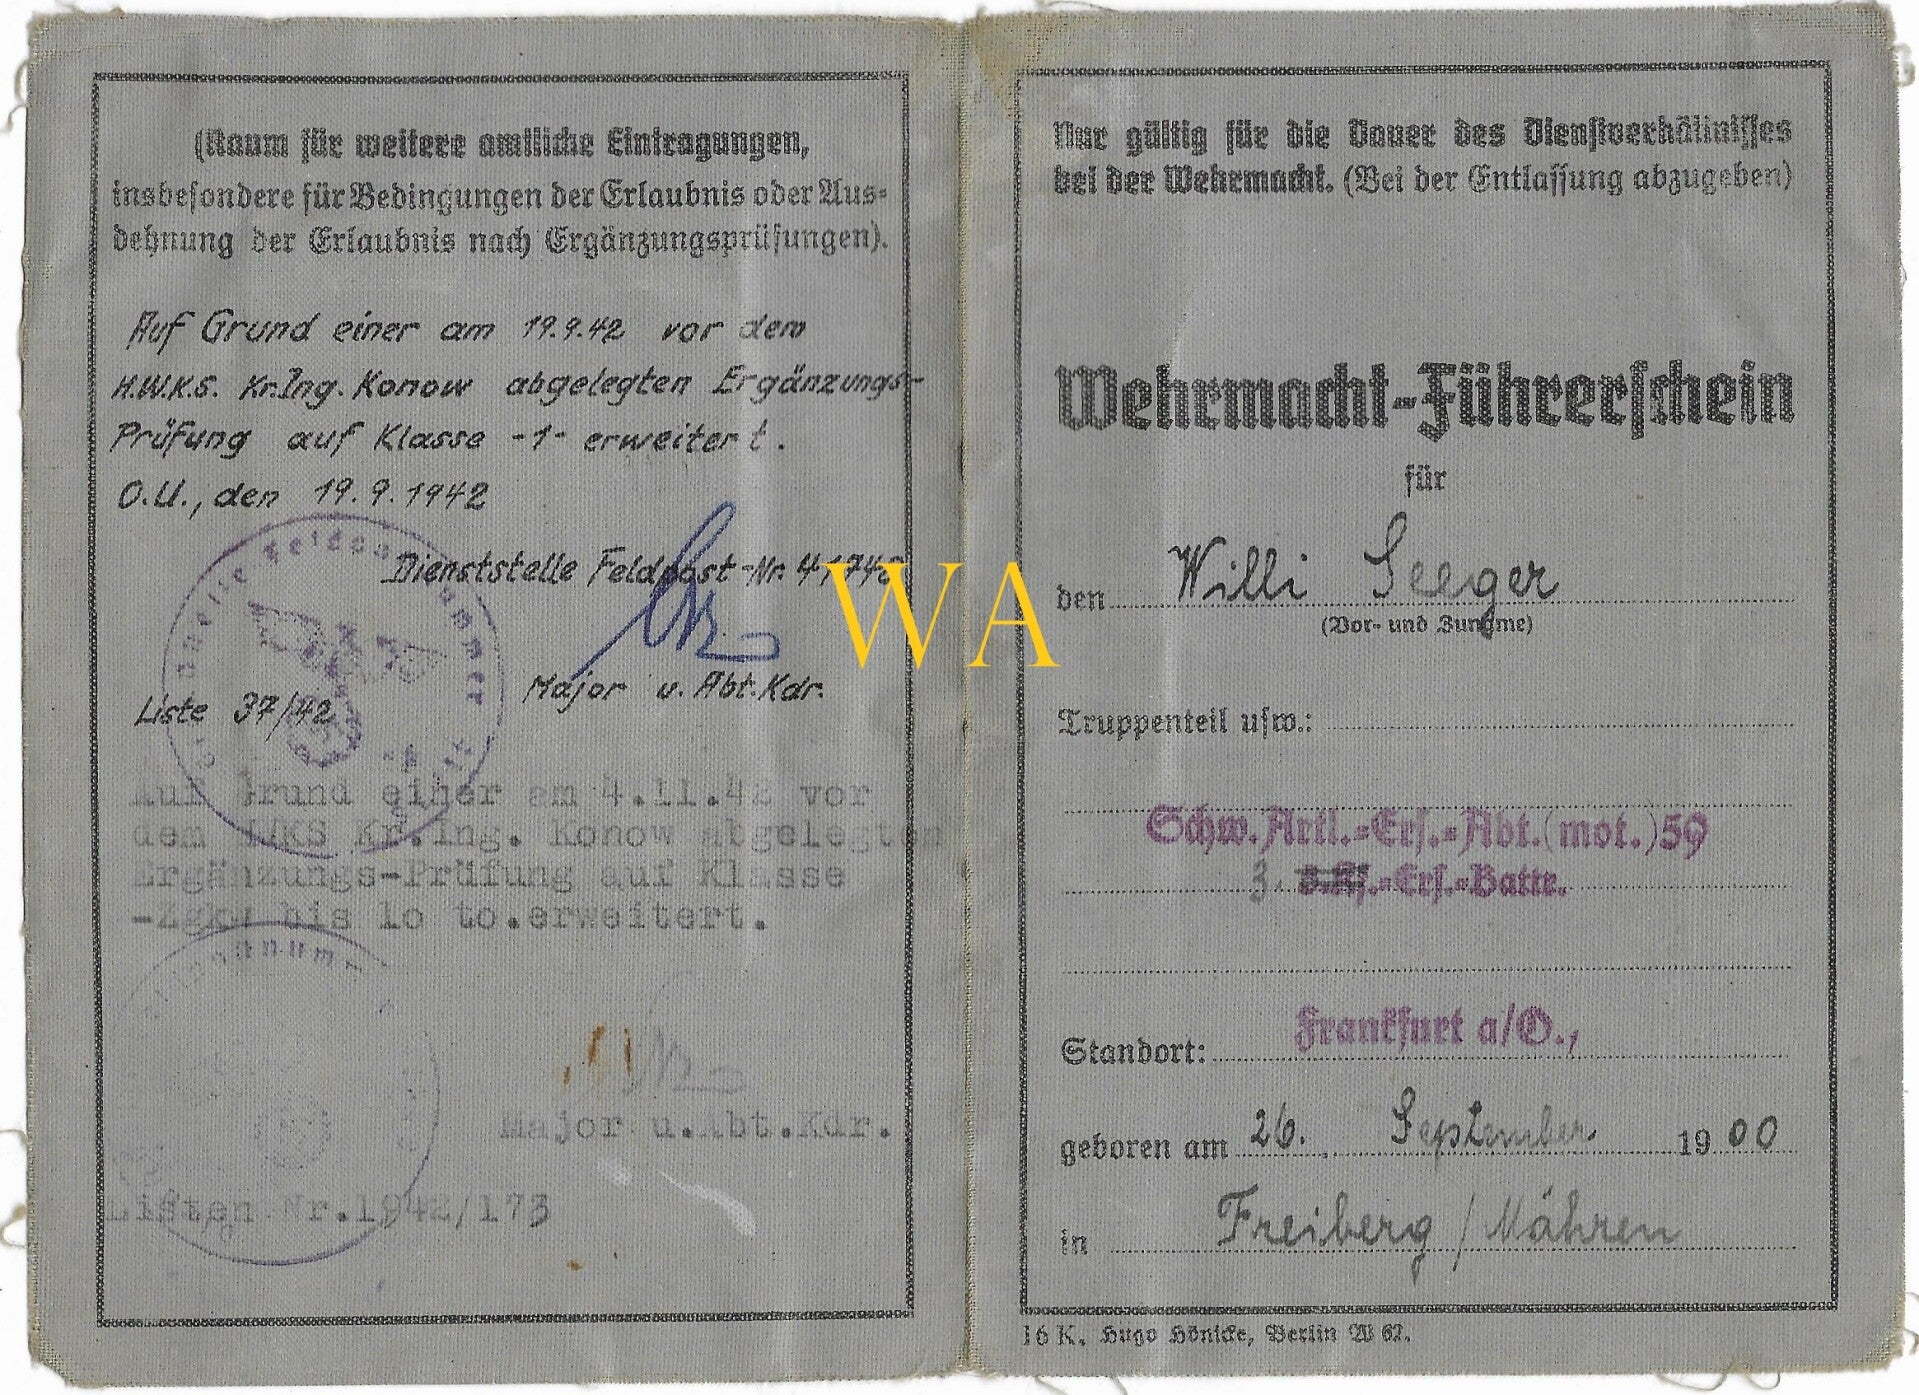 (Raum für weitere amtliche Eintragungen,
insbesondere für Bedingungen der Erlaubnis oder Aus-
dehnung der Erlaubnis nach Ergänzungsprüfungen).
Auf Grund einer am 19.9.42 vor dem
H.W.K.S. Kr.Ing. Konow abgelegten Ergänzungs-
Prüfung auf Klasse -1- erweitert.
O.U., den 19.9.1942
Dienststelle Feldpost-Nr. 41742
Major u. Abt.Kdr.
Liste 37/42
Auf Grund einer am 4.11.42 vor
dem WKS Kr.Ing. Konow abgelegten
Ergänzungs-Prüfung auf Klasse
-Zgkw bis lo to.erweitert.
Major u.Abt.Kdr.
Listen Nr.1942/173
WA
Nur gültig für die Dauer des Dienstverhältnisses
bei der Wehrmacht. (Bei der Entlassung abzugeben)
Wehrmacht-Führerschein
für
den Willi Seeger
(Vor- und Zuname)
Truppenteil usw.:
Schw. Artl.-Ers.-Abt.(mot.)59
3. -Ers.-Battr.
Standort: Frankfurt a/O.,
geboren am 26. September 1900
in Freiberg / Mähren
16 K. Hugo Hönicke, Berlin W 62.